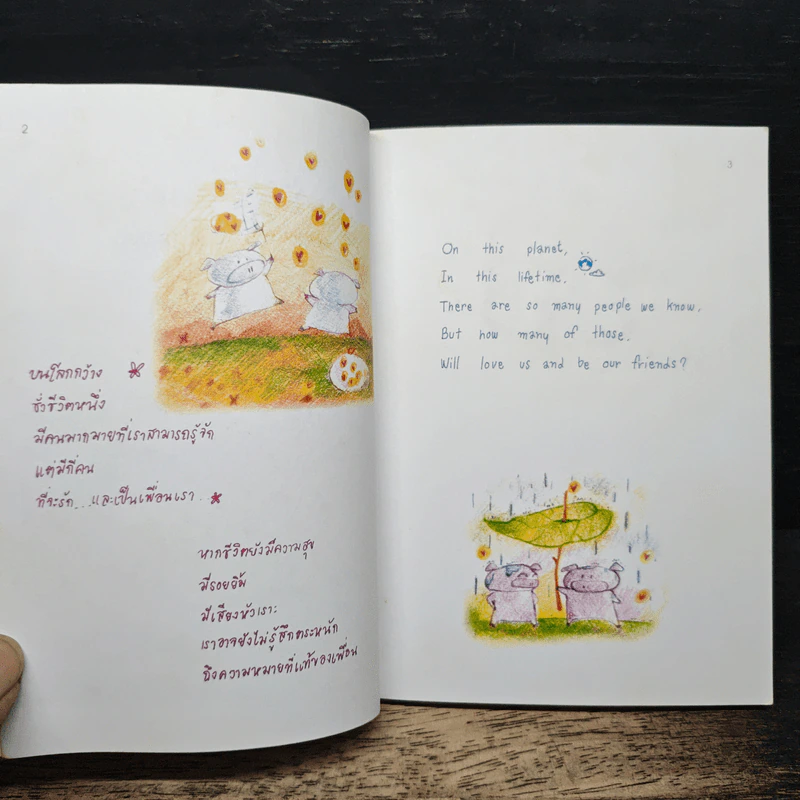 2
บนโลกกว้าง
ชั่วชีวิตหนึ่ง
มีคนมากมายที่เราสามารถรู้จัก
แต่มีกี่คน
ที่จะรัก...และเป็นเพื่อนเรา...
หากชีวิตยังมีความสุข
มีรอยยิ้ม
มีเสียงหัวเราะ
เราอาจยังไม่รู้สึกตระหนัก
ถึงความหมายที่แท้ของเพื่อน
3
On this planet,
In this lifetime.
There are so many people we know.
But how many of those.
Will love us and be our friends?